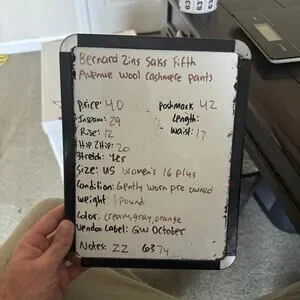 Bernard Zins Saks Fifth
Avenue wool cashmere pants
Price: 40 poshmark 42
Inseam: 29 Length:
Rise: 12 waist: 17
Hip 2 Hip: 20
Stretch: Yes
Size: US Women's 16 Plus
Condition: Gently worn pre owned
weight: 1 Pound
Color: cream, gray, orange
Vendoo Label: GW October
Notes: ZZ 6374